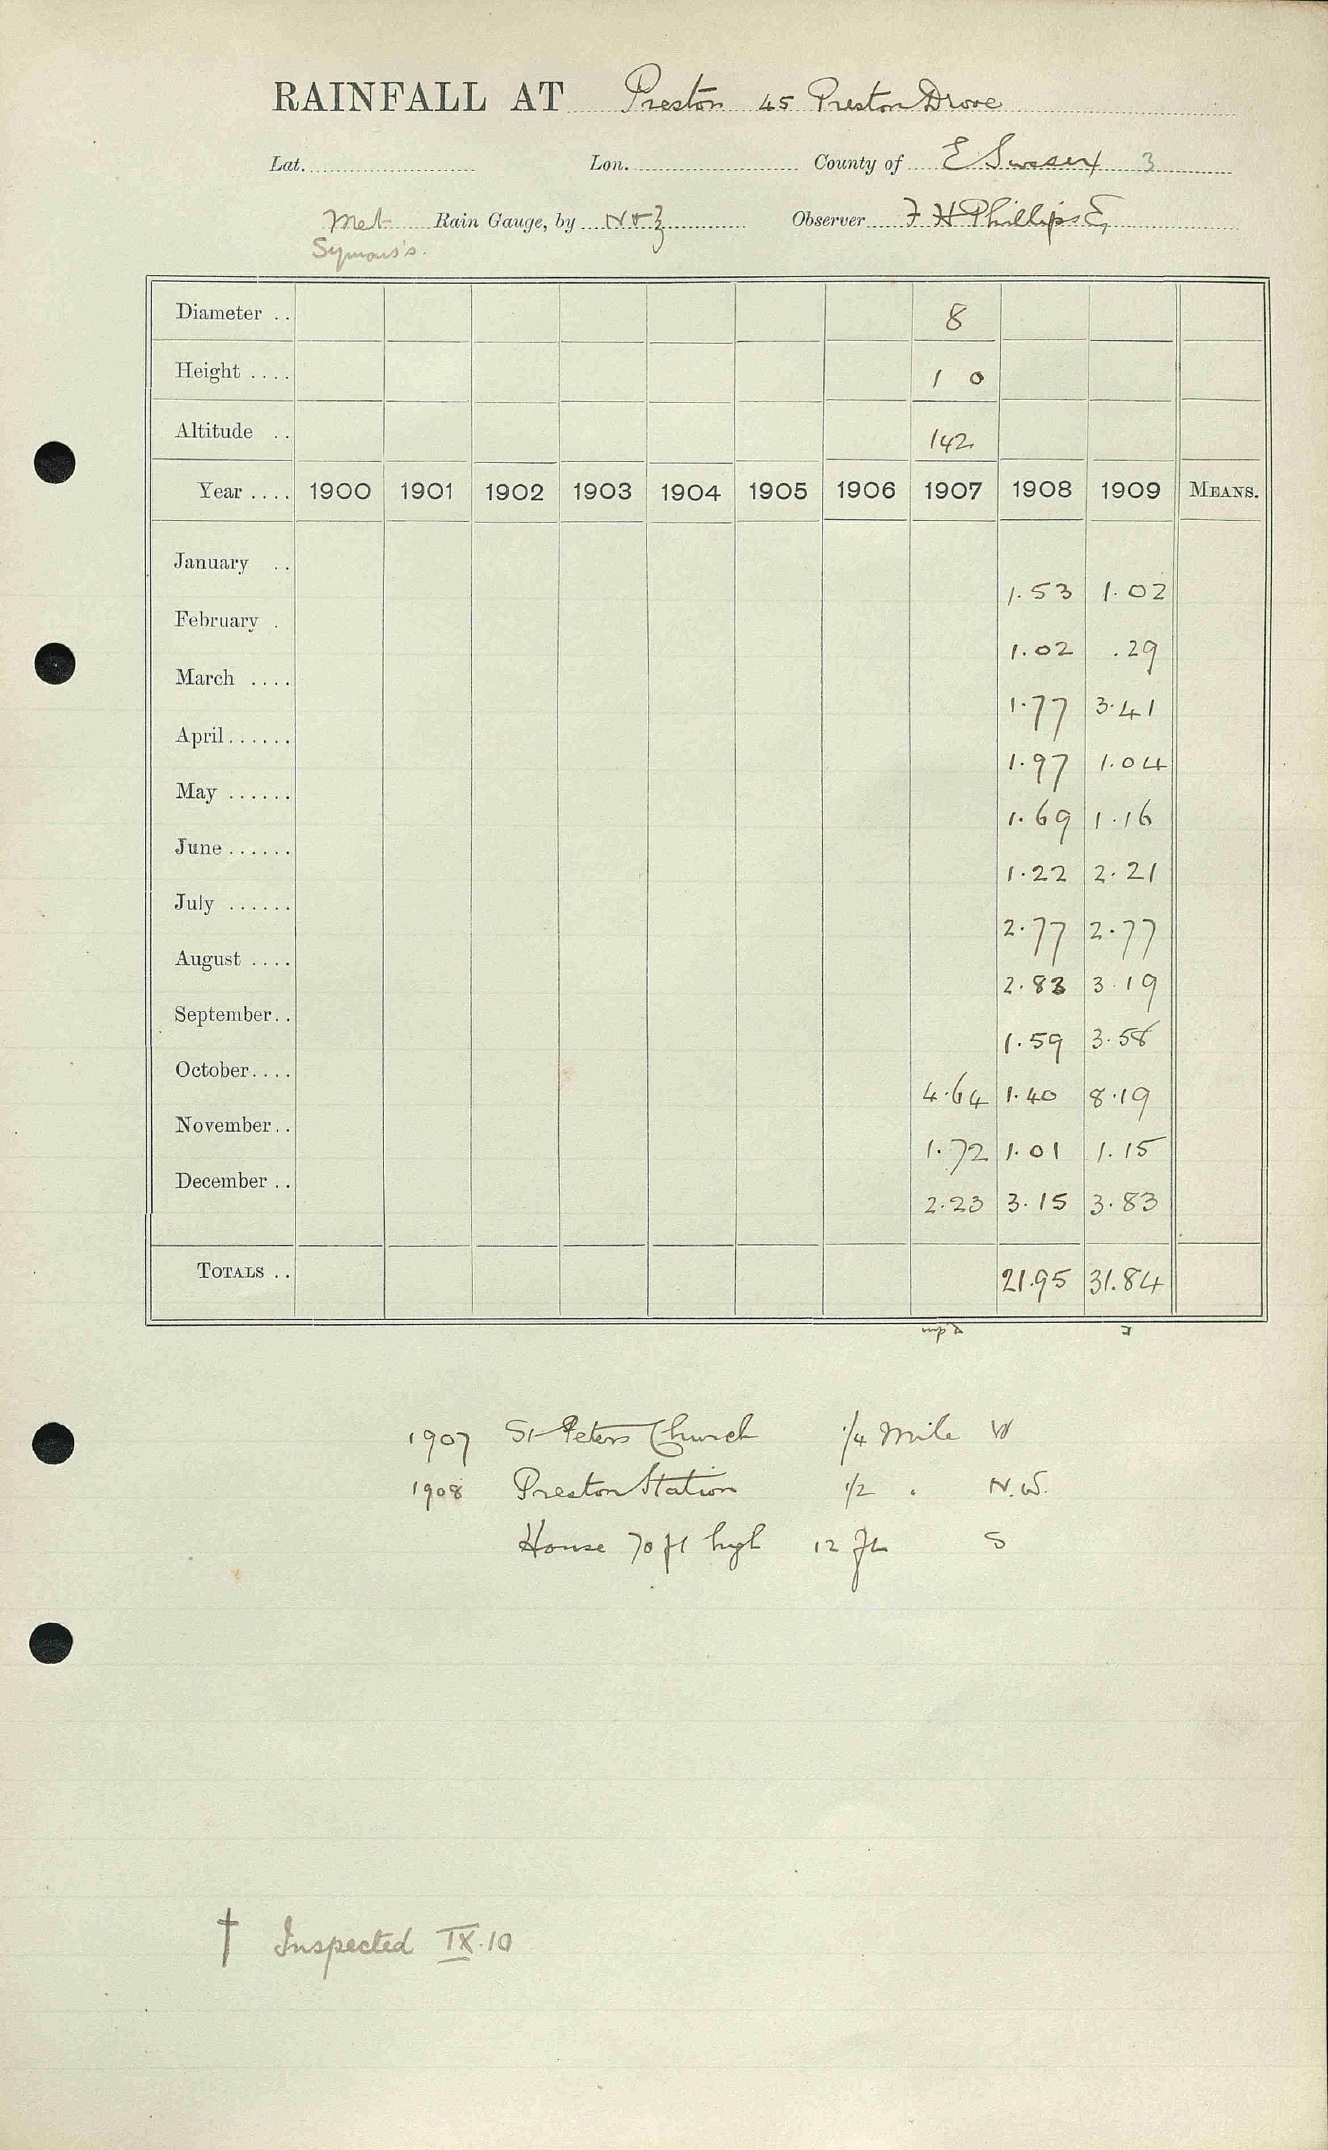 RAINFALL AT Preston 45 Preston Drove
Lat. Lon. County of E Sussex 3
Met Rain Gauge, by N & Z Observer F H Phillips E
Symons's.
Diameter .. 8
Height .... 1 0
Altitude .. 142
Year .... 1900 1901 1902 1903 1904 1905 1906 1907 1908 1909 MEANS.
January .. 1.53 1.02
February . 1.02 .29
March .... 1.77 3.41
April...... 1.97 1.04
May ...... 1.69 1.16
June ...... 1.22 2.21
July ...... 2.77 2.77
August .... 2.83 3.19
September.. 1.59 3.58
October.... 4.64 1.40 8.19
November.. 1.72 1.01 1.15
December .. 2.23 3.15 3.83
TOTALS .. 21.95 31.84
1907 St Peters Church 1/4 Mile W
1908 Preston Station 1/2 . N.W.
House 70 ft high 12 ft S
† Inspected IX.10